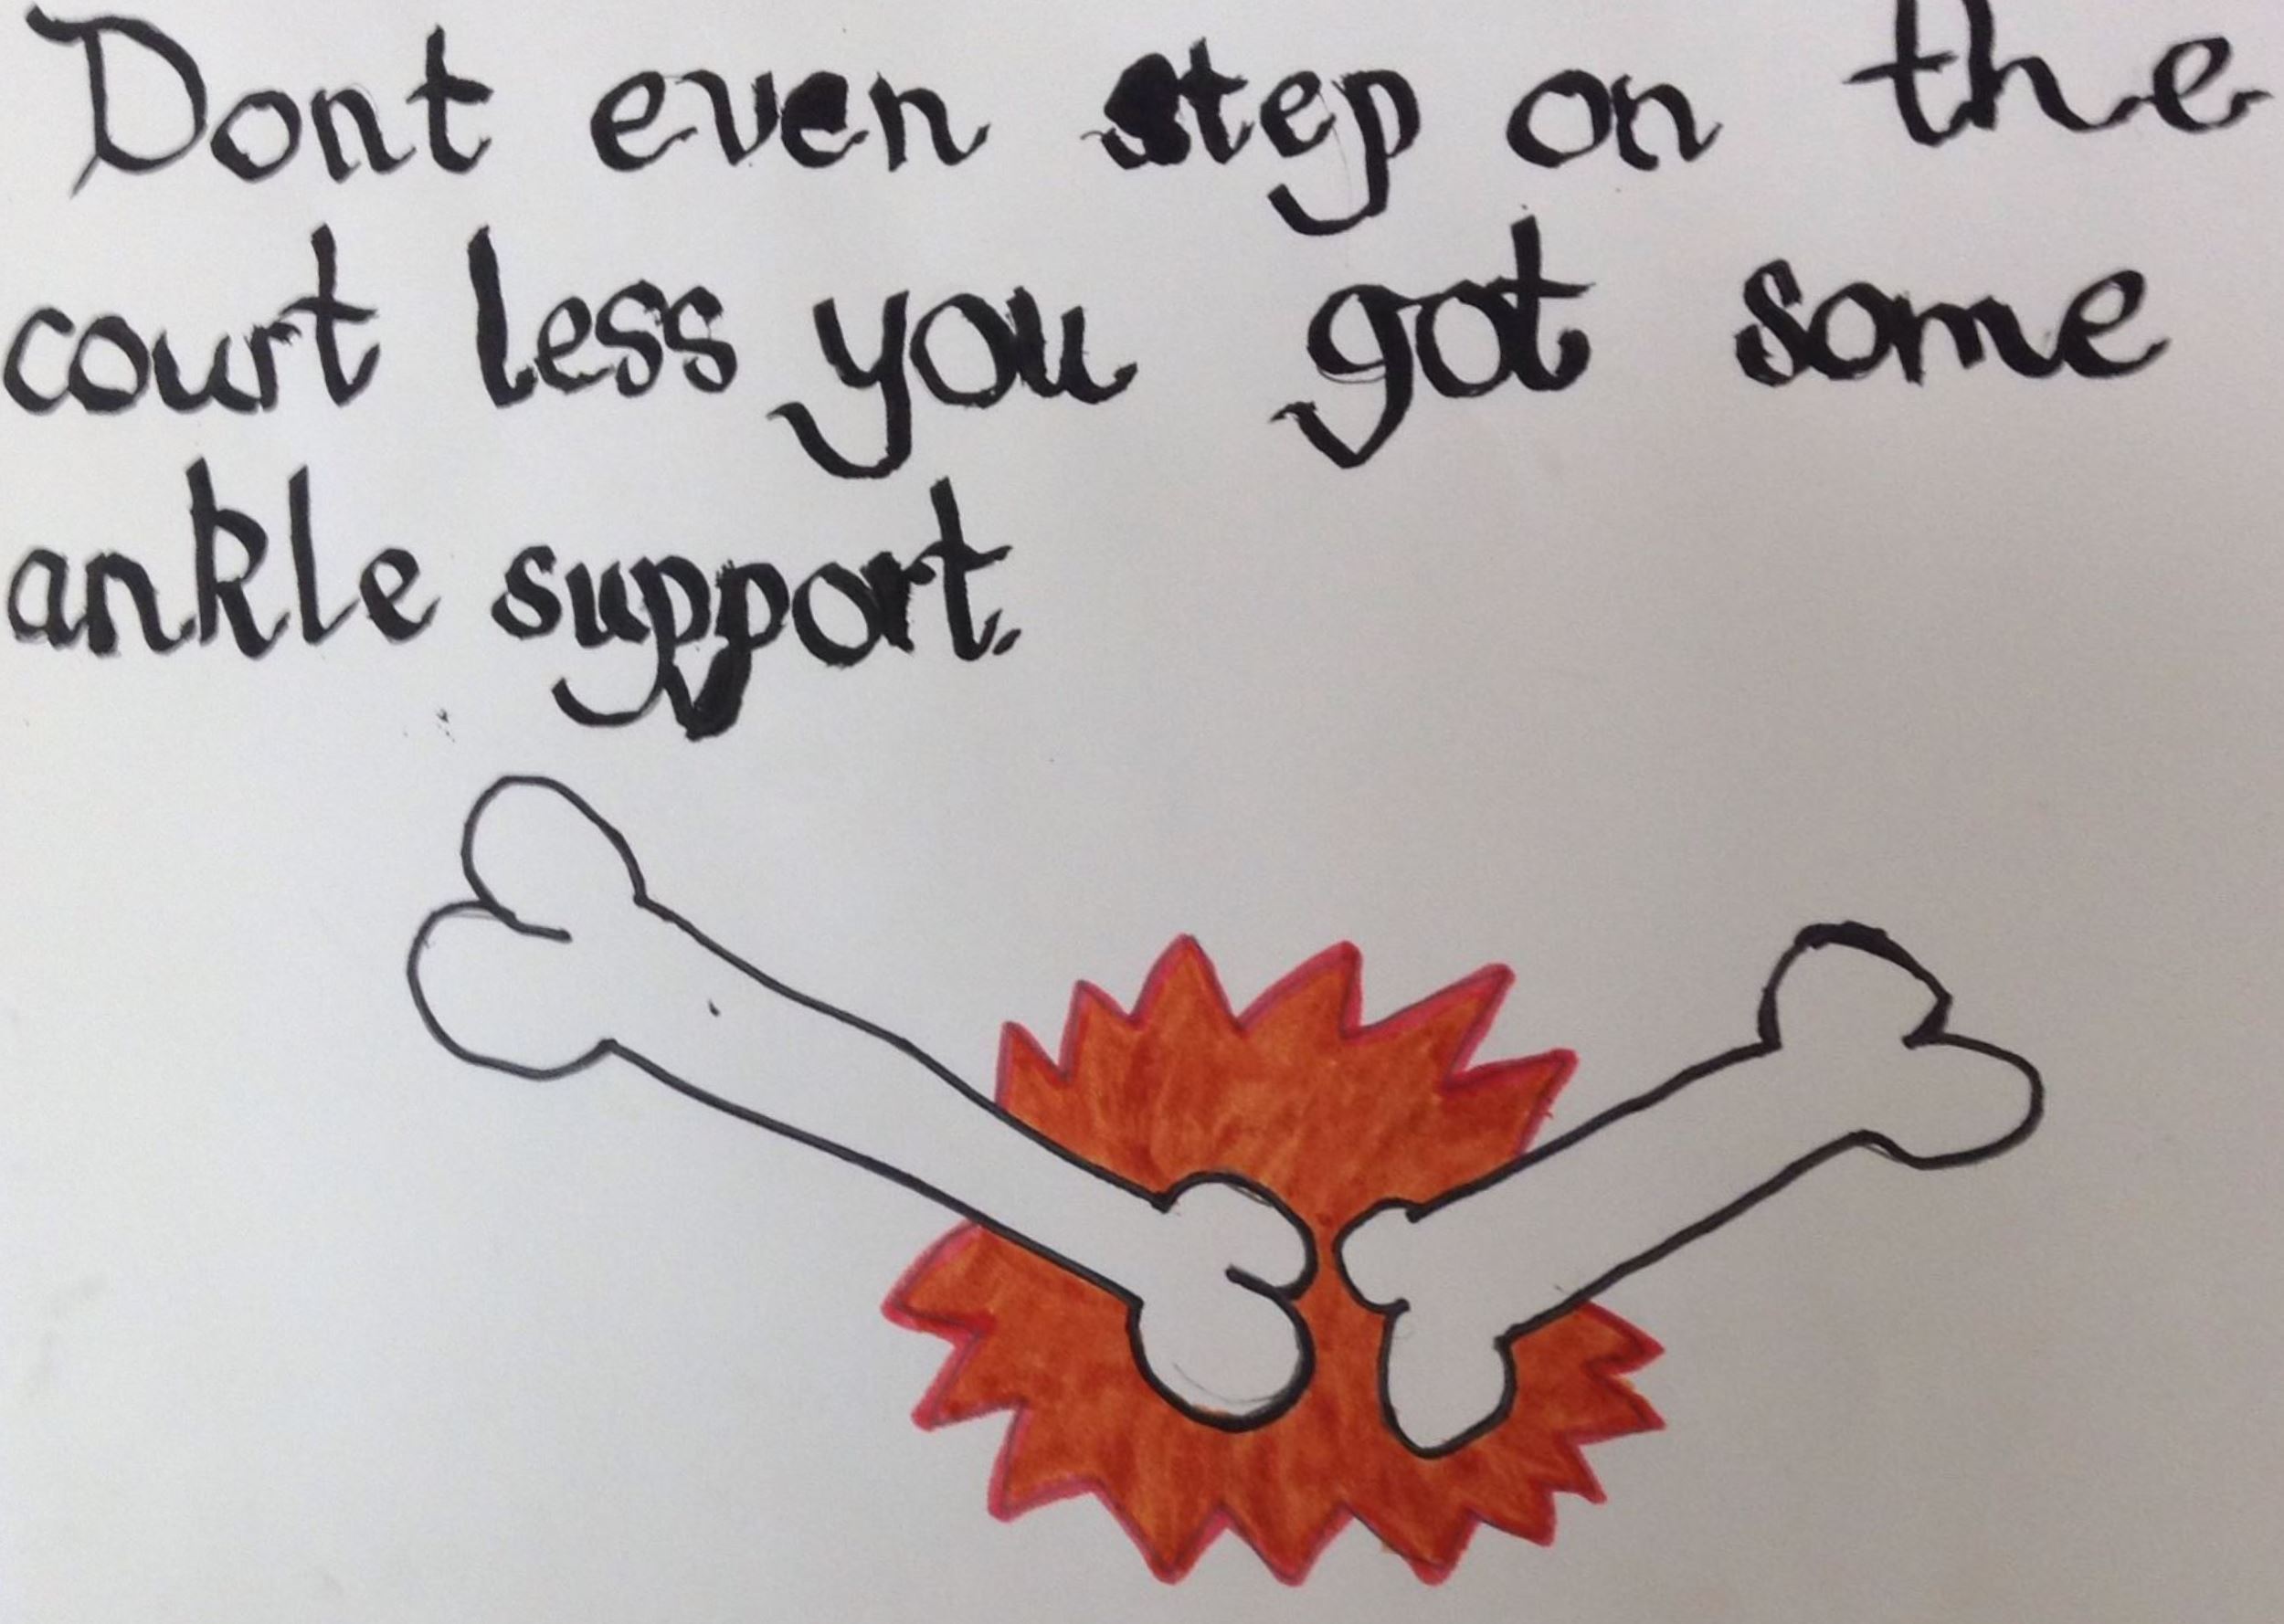 Dont even step on the
court less you got some
ankle support.